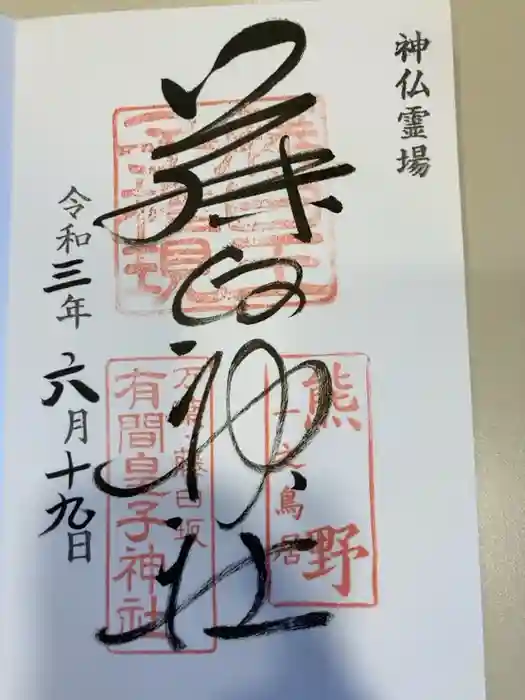 神仏霊場
藤白神社
藤白王
子権現
熊野
一之鳥居
万葉藤白坂
有間皇子神社
令和三年
六月十九日